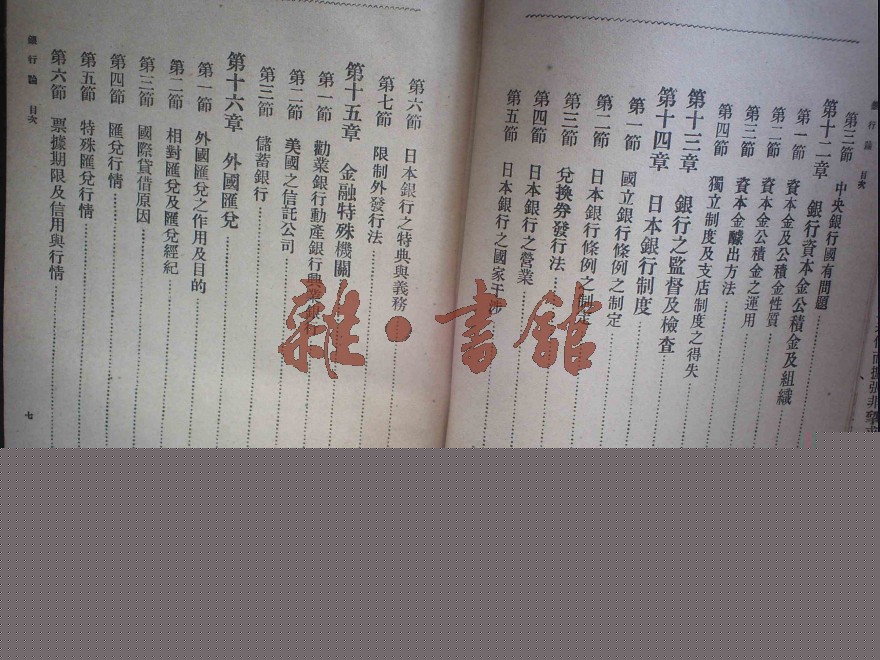 銀行論 目次
第三節 中央銀行國有問題
第十二章 銀行資本金公積金及組織
第一節 資本金及公積金性質
第二節 資本金公積金之運用
第三節 資本金醵出方法
第四節 獨立制度及支店制度之得失
第十三章 銀行之監督及檢查
第十四章 日本銀行制度
第一節 國立銀行條例之制定
第二節 日本銀行條例之制定
第三節 兌換券發行法
第四節 日本銀行之營業
第五節 日本銀行之國家干涉
第六節 日本銀行之特典與義務
第七節 限制外發行法
第十五章 金融特殊機關
第一節 勸業銀行動產銀行興業銀行
第二節 美國之信託公司
第三節 儲蓄銀行
第十六章 外國匯兌
第一節 外國匯兌之作用及目的
第二節 相對匯兌及匯兌經紀
第三節 國際貸借原因
第四節 匯兌行情
第五節 特殊匯兌行情
第六節 票據期限及信用與行情
銀行論 目次
七
雜·書館